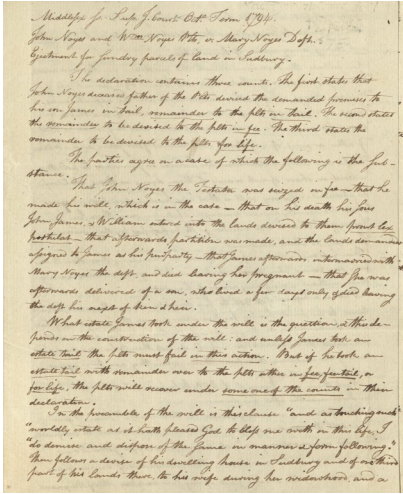 Middlesex ss Supr. J. Court Octr. Term 1794.
John Noyes and Wm. Noyes Plts, v. Mary Noyes Deft.
Ejectment for sundry parcels of land in Sudbury.
The declaration contains three counts. The first states that
John Noyes deceased father of the Plts devised the demanded premises to
his son James in tail, remainder to the plts in tail. The second states
the remainder to be devised to the plts in fee. The third states the
remainder to be devised to the plts for life.
The parties agree on a case of which the following is the sub-
stance.
That John Noyes the Testator was seized in fee — that he
made his will, which is in the case — that on his death his sons
John, James, & William entered into the lands devised to them prout lex
postulat — that afterwards partition was made, and the lands demanded
assigned to James as his purparty — that James afterwards intermarried with
Mary Noyes the deft. and died leaving her pregnant — that she was
afterwards delivered of a son, who lived a few days only & died leaving
the deft his next of kin & heir.
What estate James took under the will is the question, & this de-
pends on the construction of the will: and unless James took an
estate tail the plts must fail in this action. But if he took an
estate tail with remainder over to the plts either in fee, fee tail, or
for life, the plts will recover under some one of the counts in their
declaration.
In the preamble of the will is this clause "and as touching such
"worldly estate as it hath pleased God to bless me with in this life, I
"do demise and dispose of the same in manner & form following."
Then follows a devise of his dwelling house in Sudbury and of one third
part of his lands there to his wife during her widowhood, and a